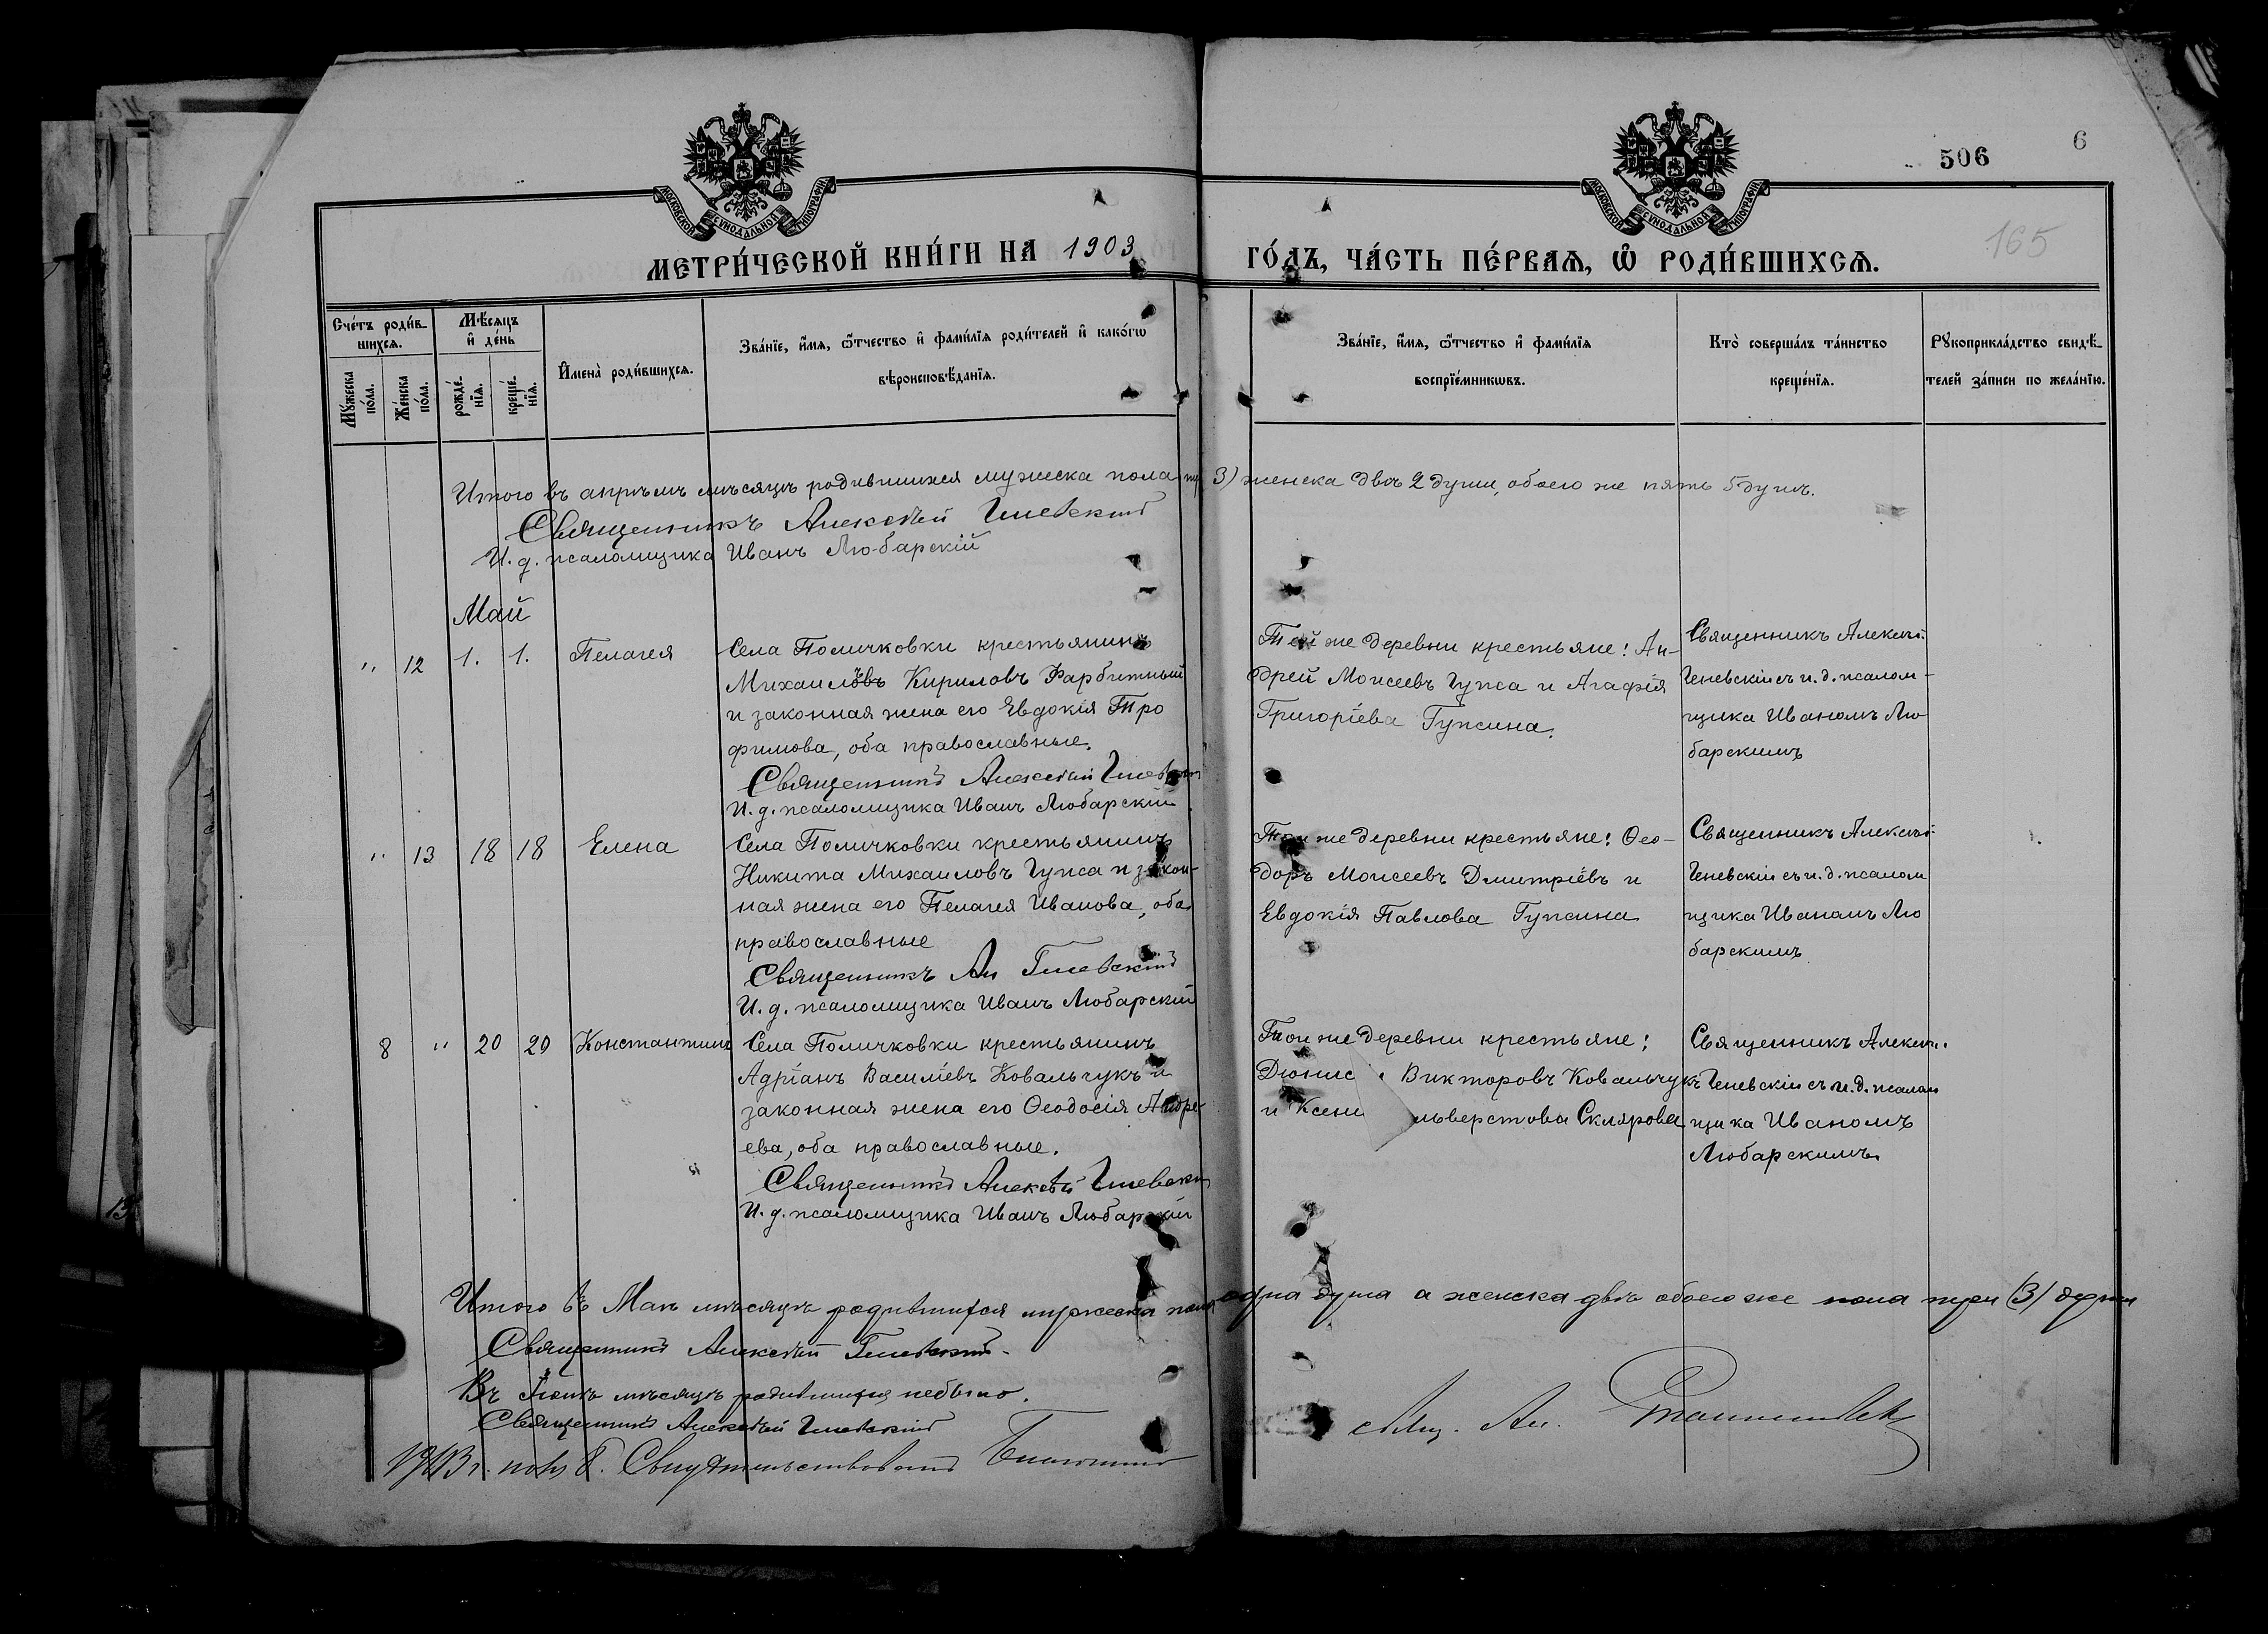 506
6
165
МОСКОВСКОЙ СѴНОДАЛЬНОЙ ТИПОГРАФІИ
МОСКОВСКОЙ СѴНОДАЛЬНОЙ ТИПОГРАФІИ
МЕТРИ́ЧЕСКОЙ КНИ́ГИ НА 1903 ГО́ДЪ, ЧА́СТЬ ПЕ́РВАѦ, Ѽ РОДИ́ВШИХСѦ.
Сче́тъ роди́в-
шихсѧ.
Мꙋжеска по́ла.
Же́нска по́ла.
Мѣ́сѧцъ
и҆ де́нь
рожде́-нїѧ.
креще́-нїѧ.
И҆мена̀ роди́вшихсѧ.
Зва́нїе, и҆́мѧ, ѻ҆́тчество и҆ фами́лїѧ роди́телей и҆ како́гѡ
вѣроисповѣ́данїѧ.
Зва́нїе, и҆́мѧ, ѻ҆́тчество и҆ фами́лїѧ
воспрїе́мникѡвъ.
Кто̀ соверша́лъ та́инство
креще́нїѧ.
Рꙋкоприкла́дство свидѣ́-
телей за́писи по жела́нїю.
Итого въ апрѣлѣ мѣсяцѣ родившихся мужеска пола 3) женска двѣ 2 души, обоего же пять 5 душъ.
Священникъ Алексѣй Гневскій
И. д. псаломщика Иванъ Любарскій
Май
" 12 1. 1. Пелагея
Села Поличковки крестьянинъ
Михаиловъ Кириловъ Фарбитный
и законная жена его Евдокія Тро
фимова, оба православные.
Священникъ Алексѣй Гневскій
И. д. псаломщика Иванъ Любарскій
Той же деревни крестьяне: Ан-
дрей Моисеевъ Гупса и Агафія
Григоріева Гупсина.
Священникъ Алексѣй
Геневскій съ и. д. псалом-
щика Иваномъ Лю
барскимъ
" 13 18 18 Елена
Села Поличковки крестьянинъ
Никита Михаиловъ Гупса и закон-
ная жена его Пелагея Иванова, оба
православные
Священникъ Ал Гневскій
И. д. псаломщика Иванъ Любарскій
Той же деревни крестьяне: Ѳео-
доръ Моисеевъ Дмитріевъ и
Евдокія Павлова Гупсина
Священникъ Алексѣй
Геневскій съ и. д. псалом
щика Иваномъ Лю
барскимъ
8 " 20 20 Константинъ
Села Поличковки крестьянинъ
Адріанъ Василіевъ Ковальчукъ и
законная жена его Ѳеодосія Андре
ева, оба православные.
Священникъ Алексѣй Гневскій
И. д. псаломщика Иванъ Любарскій
Той же деревни крестьяне:
Дионис Викторовъ Ковальчукъ
и Ксени льверстова Склярова
Священникъ Алексѣй
Геневскій съ и. д. псалом
щика Иваномъ
Любарскимъ
Итого въ Маѣ мѣсяцѣ родившихся мужеска пола одна душа а женска двѣ обоего же пола три (3) души
Священникъ Алексѣй Гневскій
Въ Іюнѣ мѣсяцѣ родившихся небыло.
Священникъ Алексѣй Гневскій
1903 г. 8. Свидѣтельствовалъ